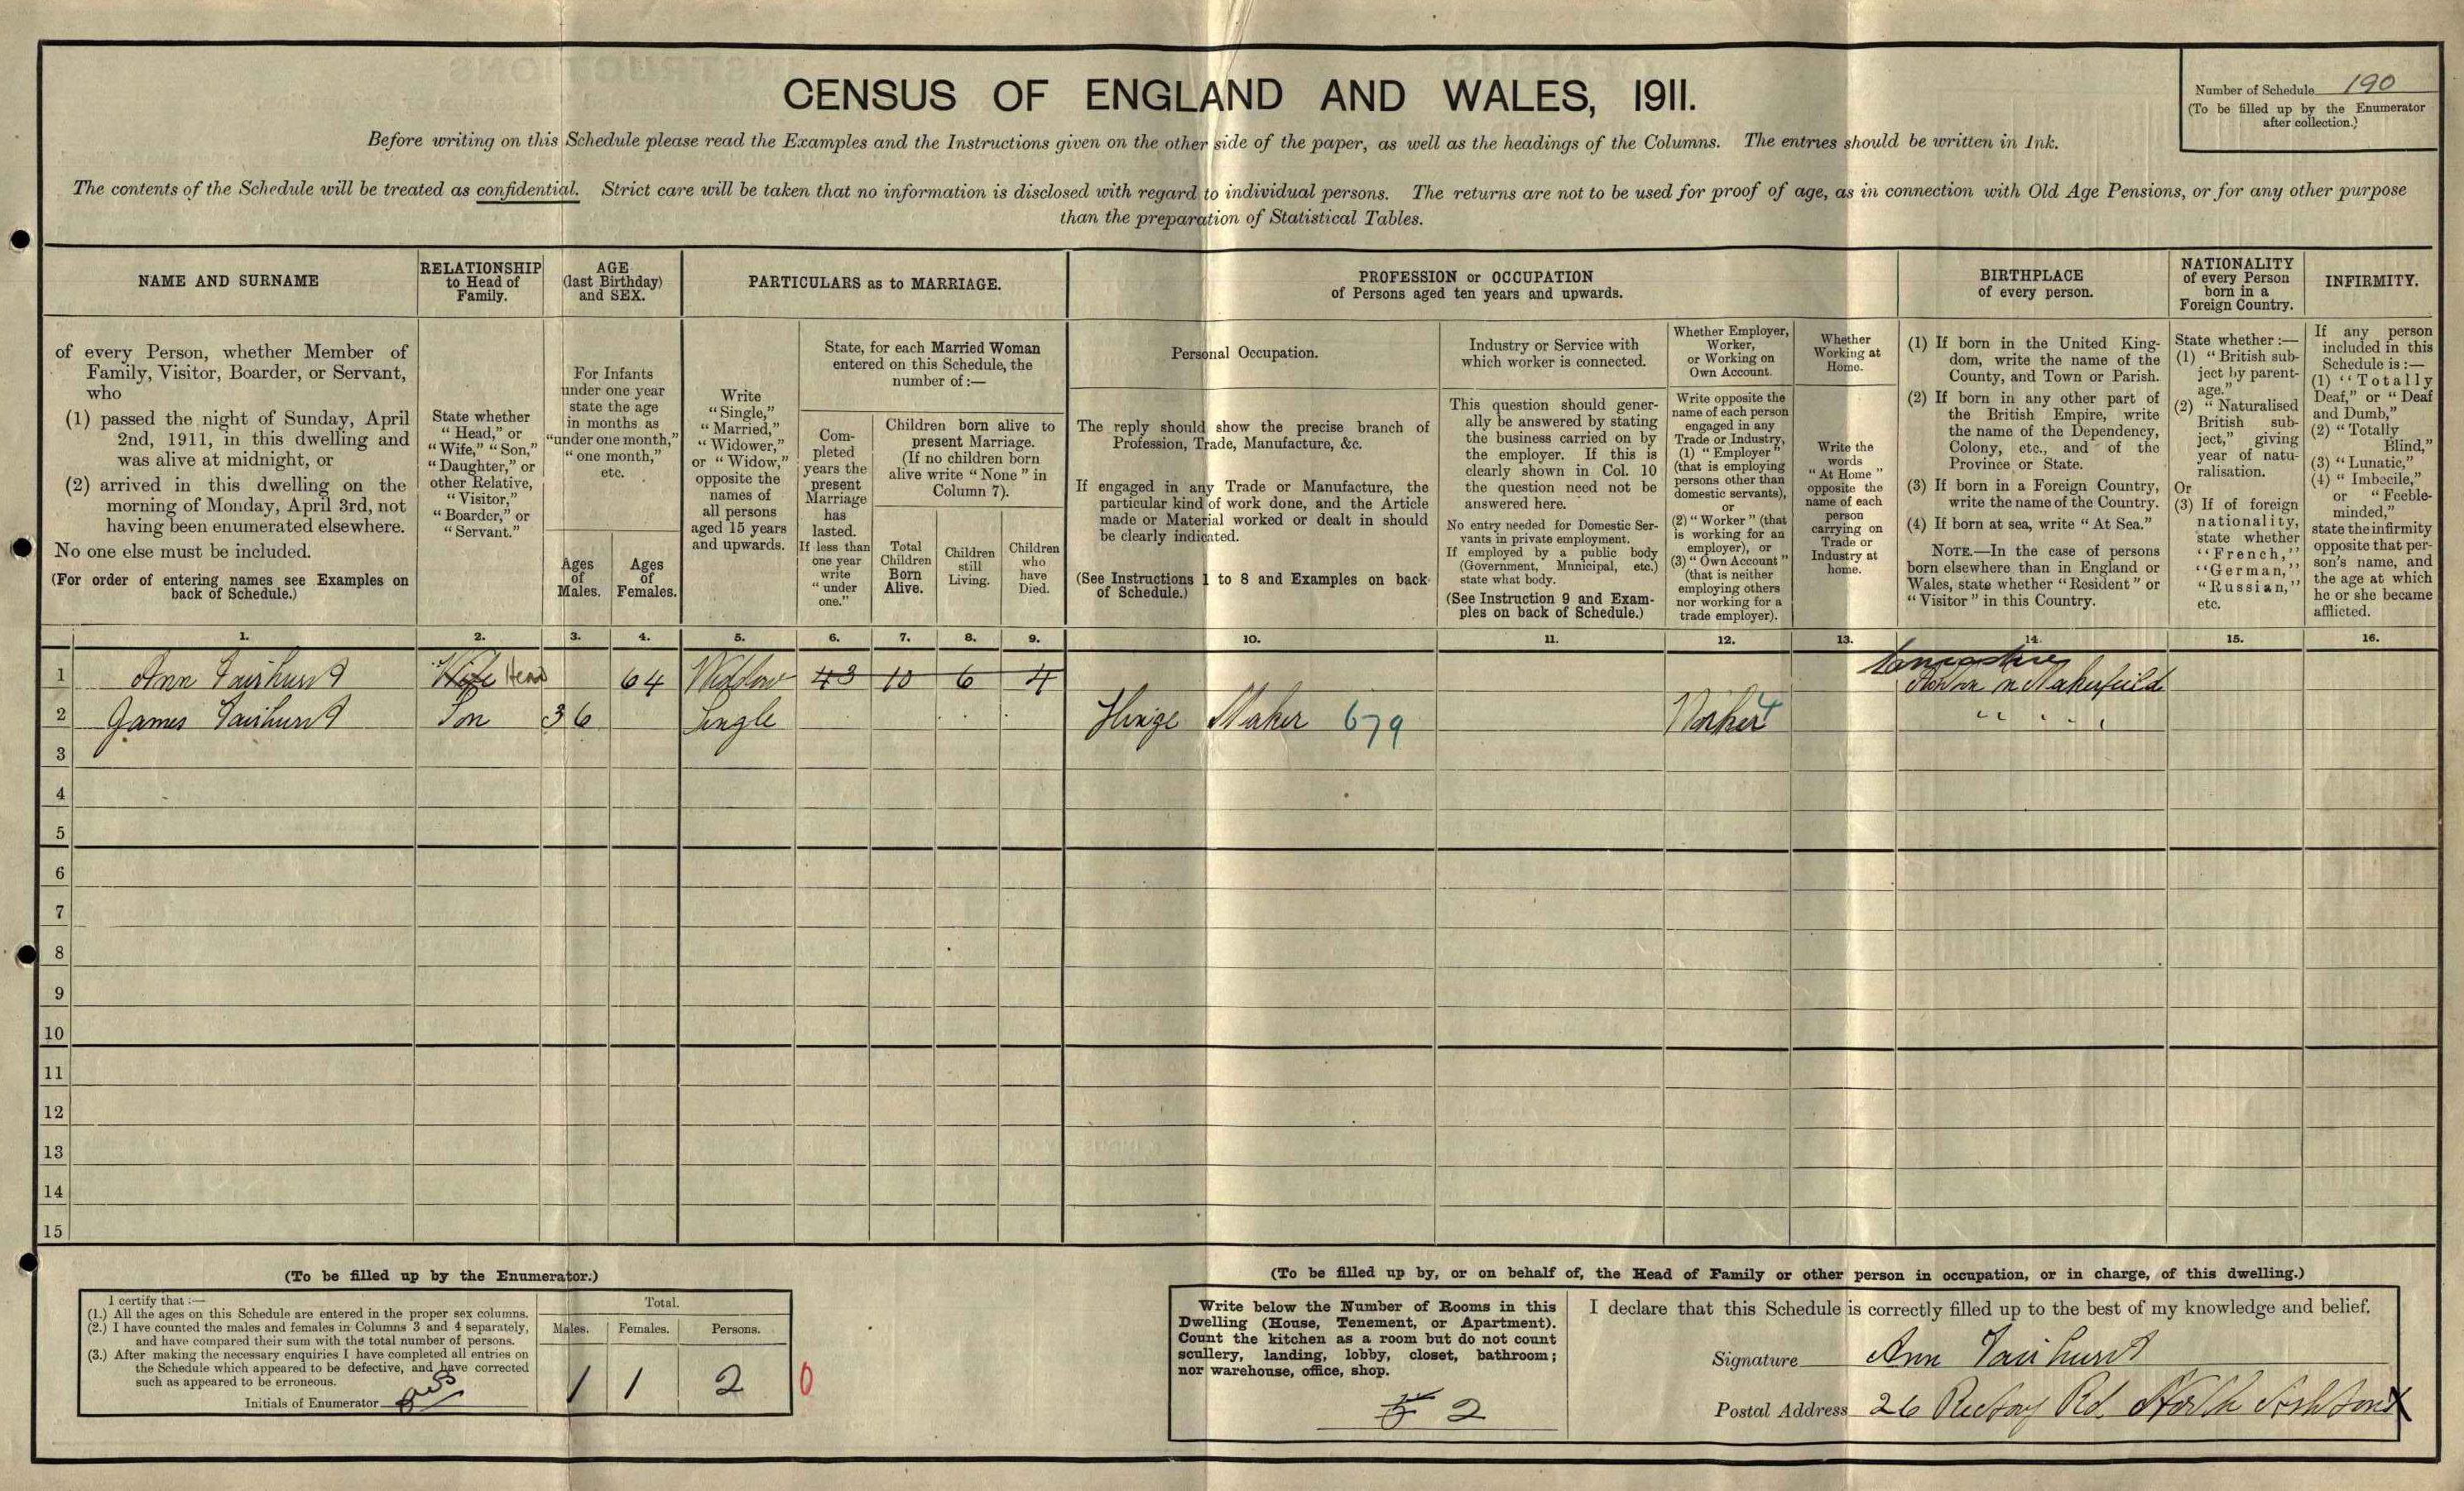 CENSUS OF ENGLAND AND WALES, 1911.
Number of Schedule 190
(To be filled up by the Enumerator
after collection.)
Before writing on this Schedule please read the Examples and the Instructions given on the other side of the paper, as well as the headings of the Columns. The entries should be written in Ink.
The contents of the Schedule will be treated as confidential. Strict care will be taken that no information is disclosed with regard to individual persons. The returns are not to be used for proof of age, as in connection with Old Age Pensions, or for any other purpose
than the preparation of Statistical Tables.
NAME AND SURNAME
of every Person, whether Member of
Family, Visitor, Boarder, or Servant,
who
(1) passed the night of Sunday, April
2nd, 1911, in this dwelling and
was alive at midnight, or
(2) arrived in this dwelling on the
morning of Monday, April 3rd, not
having been enumerated elsewhere.
No one else must be included.
(For order of entering names see Examples on
back of Schedule.)
RELATIONSHIP
to Head of
Family.
State whether
"Head," or
"Wife," "Son,"
"Daughter," or
other Relative,
"Visitor,"
"Boarder," or
"Servant."
AGE
(last Birthday)
and SEX.
For Infants
under one year
state the age
in months as
"under one month,"
"one month,"
etc.
Ages
of
Males.
Ages
of
Females.
PARTICULARS as to MARRIAGE.
Write
"Single,"
"Married,"
"Widower,"
or "Widow,"
opposite the
names of
all persons
aged 15 years
and upwards.
State, for each Married Woman
entered on this Schedule, the
number of :—
Com-
pleted
years the
present
Marriage
has
lasted.
If less than
one year
write
"under
one."
Children born alive to
present Marriage.
(If no children born
alive write "None" in
Column 7).
Total
Children
Born
Alive.
Children
still
Living.
Children
who
have
Died.
PROFESSION or OCCUPATION
of Persons aged ten years and upwards.
Personal Occupation.
The reply should show the precise branch of
Profession, Trade, Manufacture, &c.
If engaged in any Trade or Manufacture, the
particular kind of work done, and the Article
made or Material worked or dealt in should
be clearly indicated.
(See Instructions 1 to 8 and Examples on back
of Schedule.)
Industry or Service with
which worker is connected.
This question should gener-
ally be answered by stating
the business carried on by
the employer. If this is
clearly shown in Col. 10
the question need not be
answered here.
No entry needed for Domestic Ser-
vants in private employment.
If employed by a public body
(Government, Municipal, etc.)
state what body.
(See Instruction 9 and Exam-
ples on back of Schedule.)
Whether Employer,
Worker,
or Working on
Own Account.
Write opposite the
name of each person
engaged in any
Trade or Industry,
(1) "Employer"
(that is employing
persons other than
domestic servants),
or
(2) "Worker" (that
is working for an
employer), or
(3) "Own Account"
(that is neither
employing others
nor working for a
trade employer).
Whether
Working at
Home.
Write the
words
"At Home"
opposite the
name of each
person
carrying on
Trade or
Industry at
home.
BIRTHPLACE
of every person.
(1) If born in the United King-
dom, write the name of the
County, and Town or Parish.
(2) If born in any other part of
the British Empire, write
the name of the Dependency,
Colony, etc., and of the
Province or State.
(3) If born in a Foreign Country,
write the name of the Country.
(4) If born at sea, write "At Sea."
NOTE.—In the case of persons
born elsewhere than in England or
Wales, state whether "Resident" or
"Visitor" in this Country.
NATIONALITY
of every Person
born in a
Foreign Country.
State whether :—
(1) "British sub-
ject by parent-
age."
(2) "Naturalised
British sub-
ject," giving
year of natu-
ralisation.
Or
(3) If of foreign
nationality,
state whether
"French,"
"German,"
"Russian,"
etc.
INFIRMITY.
If any person
included in this
Schedule is :—
(1) "Totally
Deaf," or "Deaf
and Dumb,"
(2) "Totally
Blind,"
(3) "Lunatic,"
(4) "Imbecile,"
or "Feeble-
minded,"
state the infirmity
opposite that per-
son's name, and
the age at which
he or she became
afflicted.
1. 2. 3. 4. 5. 6. 7. 8. 9. 10. 11. 12. 13. 14. 15. 16.
Lancashire
1 Ann Fairhurst Wife Head 64 Widow 43 10 6 4 Ashton n Makerfield
2 James Fairhurst Son 36 Single Hinge Maker 679 Worker " " "
3
4
5
6
7
8
9
10
11
12
13
14
15
(To be filled up by the Enumerator.)
I certify that :—
(1.) All the ages on this Schedule are entered in the proper sex columns.
(2.) I have counted the males and females in Columns 3 and 4 separately,
and have compared their sum with the total number of persons.
(3.) After making the necessary enquiries I have completed all entries on
the Schedule which appeared to be defective, and have corrected
such as appeared to be erroneous.
Initials of Enumerator
Total.
Males. Females. Persons.
1 1 2 0
(To be filled up by, or on behalf of, the Head of Family or other person in occupation, or in charge, of this dwelling.)
Write below the Number of Rooms in this
Dwelling (House, Tenement, or Apartment).
Count the kitchen as a room but do not count
scullery, landing, lobby, closet, bathroom;
nor warehouse, office, shop.
5 2
I declare that this Schedule is correctly filled up to the best of my knowledge and belief.
Signature Ann Fairhurst
Postal Address 26 Rectory Rd. North Ashton